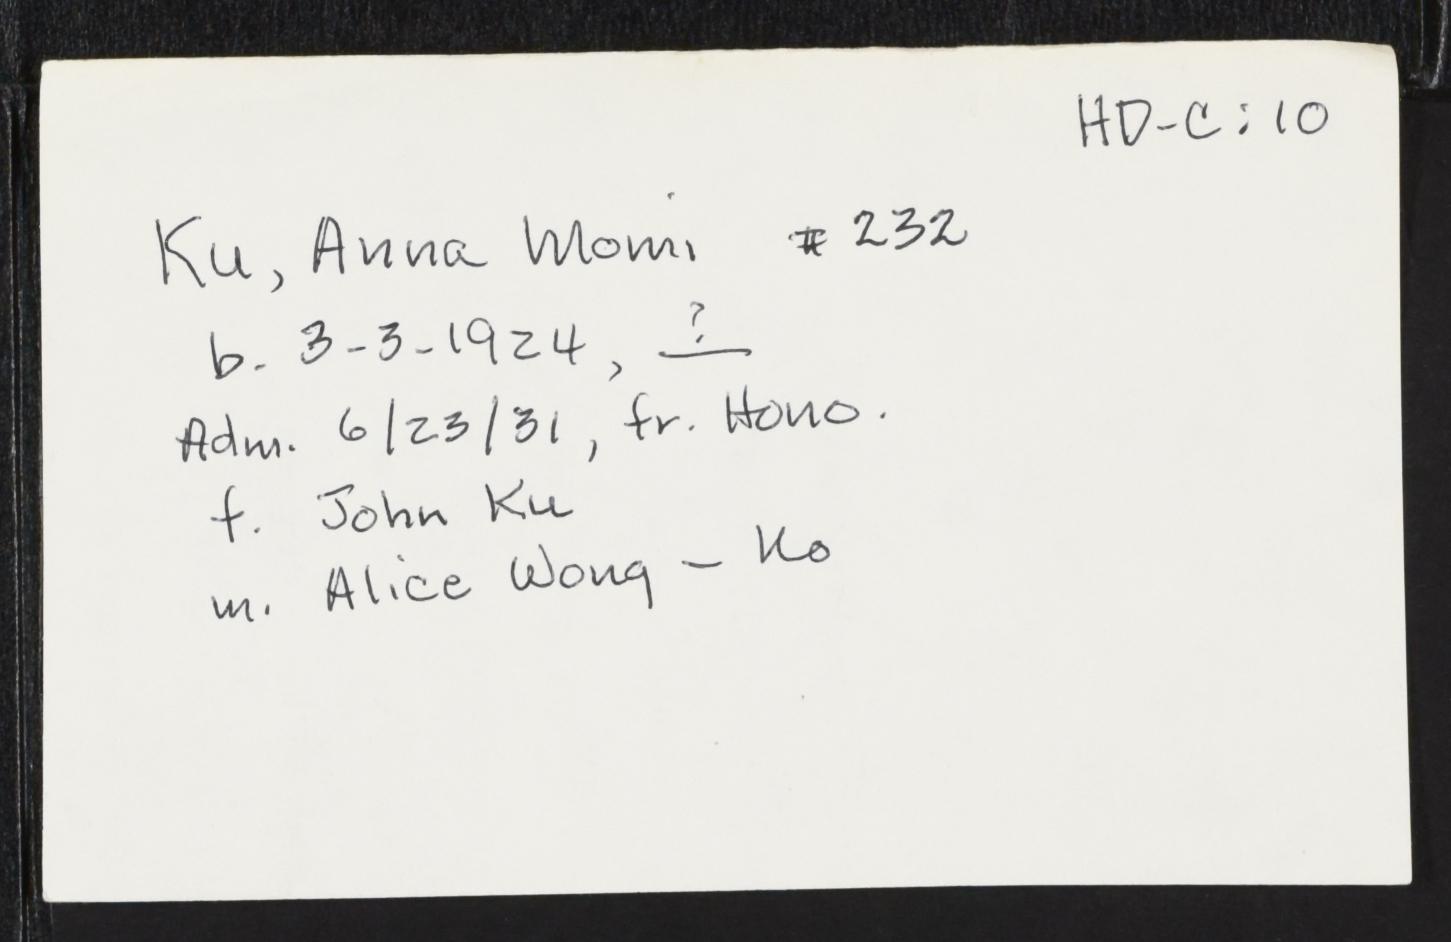 HD-C:10
Ku, Anna Momi # 232
b. 3-3-1924, ?
Adm. 6/23/31, fr. Hono.
f. John Ku
m. Alice Wong - Ko